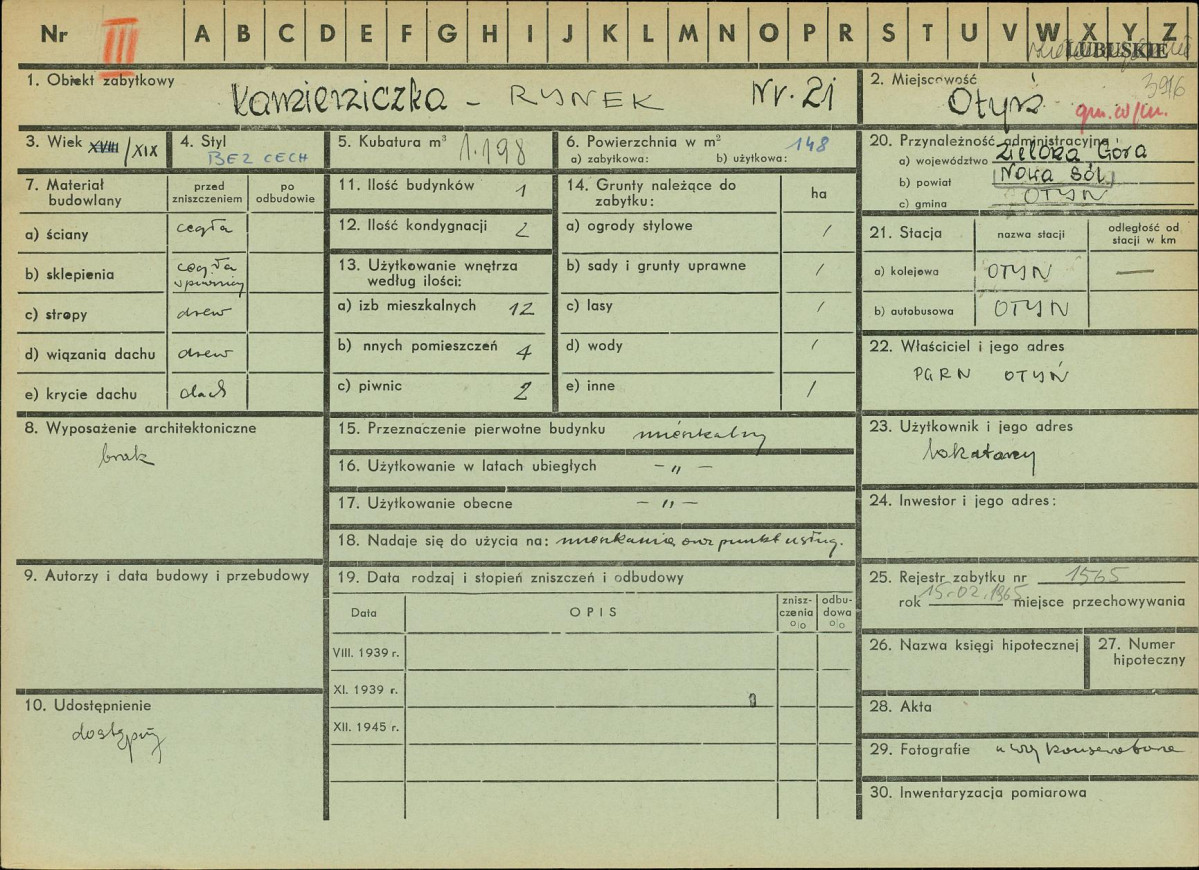 Nr III A B C D E F G H I J K L M N O P R S T U V W X Y Z
LUBUSKIE
1. Obiekt zabytkowy Kamieniczka - RYNEK Nr. 21
2. Miejscowość Otyń 3916
gm. w/m.
3. Wiek XVIII /XIX
4. Styl BEZ CECH
5. Kubatura m³ 1.198
6. Powierzchnia w m²
a) zabytkowa: b) użytkowa: 148
7. Materiał budowlany
przed zniszczeniem
po odbudowie
a) ściany cegła
b) sklepienia cegła w piwnicy
c) stropy drew
d) wiązania dachu drew
e) krycie dachu dach
8. Wyposażenie architektoniczne
brak
9. Autorzy i data budowy i przebudowy
10. Udostępnienie
dostępny
11. Ilość budynków 1
12. Ilość kondygnacji 2
13. Użytkowanie wnętrza według ilości:
a) izb mieszkalnych 12
b) nnych pomieszczeń 4
c) piwnic 2
14. Grunty należące do zabytku: ha
a) ogrody stylowe /
b) sady i grunty uprawne /
c) lasy /
d) wody /
e) inne /
15. Przeznaczenie pierwotne budynku mieszkalny
16. Użytkowanie w latach ubiegłych - „ -
17. Użytkowanie obecne - „ -
18. Nadaje się do użycia na: mieszkania oraz punkt usług.
19. Data rodzaj i stopień zniszczeń i odbudowy
Data OPIS znisz-czenia % odbu-dowa %
VIII. 1939 r.
XI. 1939 r.
XII. 1945 r.
20. Przynależność administracyjna
a) województwo Zielona Góra
b) powiat Nowa Sól.
c) gmina OTYŃ
21. Stacja nazwa stacji odległość od stacji w km
a) kolejowa OTYŃ —
b) autobusowa OTYŃ
22. Właściciel i jego adres
PGRN OTYŃ
23. Użytkownik i jego adres
lokatorzy
24. Inwestor i jego adres:
25. Rejestr zabytku nr 1565
rok 15.02.1965 miejsce przechowywania
26. Nazwa księgi hipotecznej
27. Numer hipoteczny
28. Akta
29. Fotografie u woj konserwatora
30. Inwentaryzacja pomiarowa